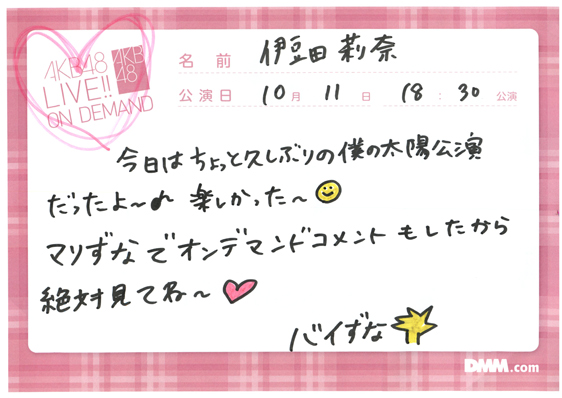 AKB48
LIVE!!
ON DEMAND
AKB
48
名前 伊豆田莉奈
公演日 10月 11日 18:30公演
今日はちょっと久しぶりの僕の太陽公演
だったよ〜♪ 楽しかった〜
マリずなでオンデマンドコメントもしたから
絶対見てね〜
バイずな
DMM.com